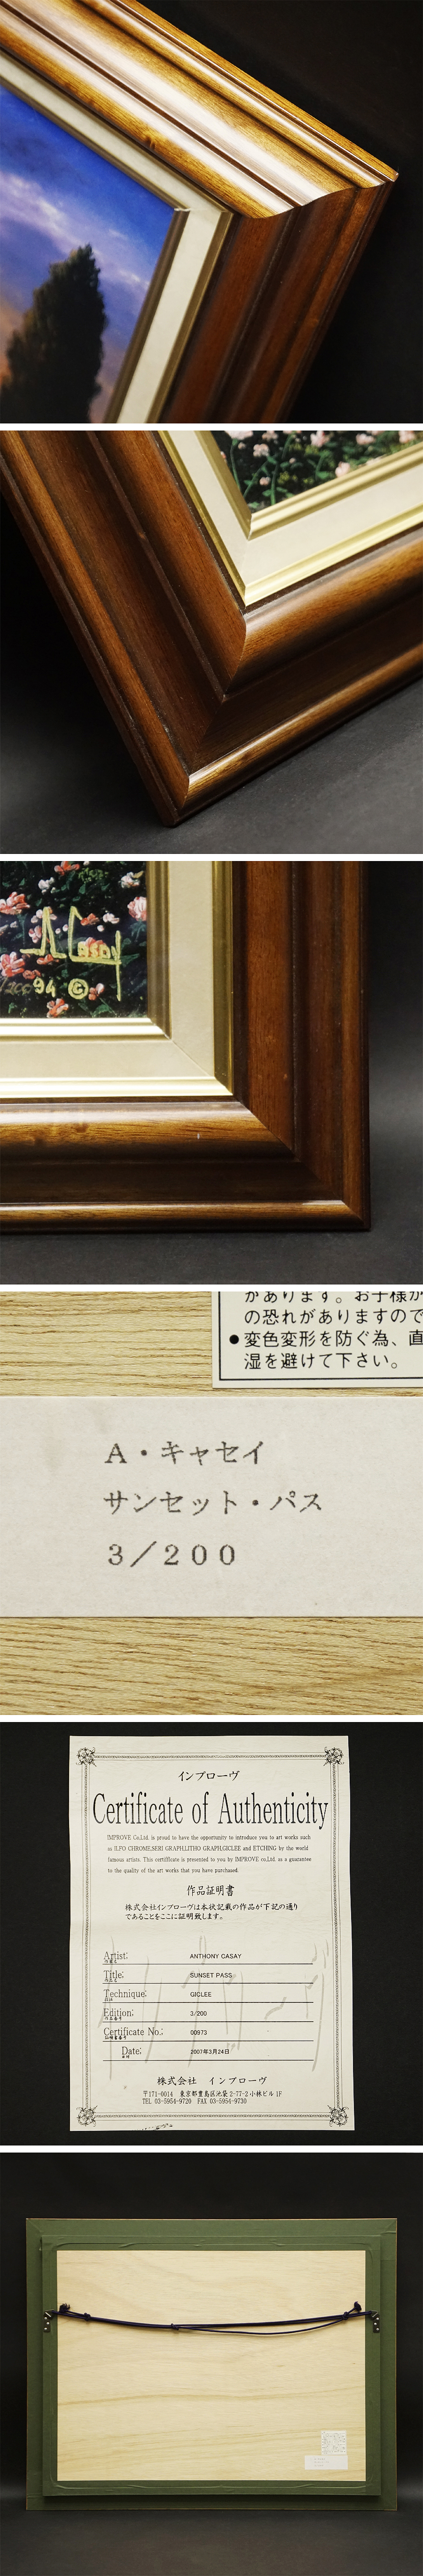 A Casay
94 ©
があります。お子様が
の恐れがありますので
●変色変形を防ぐ為、直
湿を避けて下さい。
A・キャセイ
サンセット・パス
3/200
インプローヴ
Certificate of Authenticity
IMPROVE Co,Ltd. is proud to have the opportunity to introduce you to art works such
as ILFO CHROME,SERI GRAPH,LITHO GRAPH,GICLEE and ETCHING by the world
famous artists. This certifficate is presented to you by IMPROVE co,Ltd. as a guarantee
to the quality of the art works that you have purchased.
作品証明書
株式会社インプローヴは本状記載の作品が下記の通り
であることをここに証明致します。
Artist: ANTHONY CASAY
Title: SUNSET PASS
Technique: GICLEE
Edition: 3/200
Certificate No.: 00973
Date: 2007年3月24日
株式会社 インプローヴ
〒171-0014 東京都豊島区池袋 2-77-2 小林ビル 1F
TEL 03-5954-9720 FAX 03-5954-9730